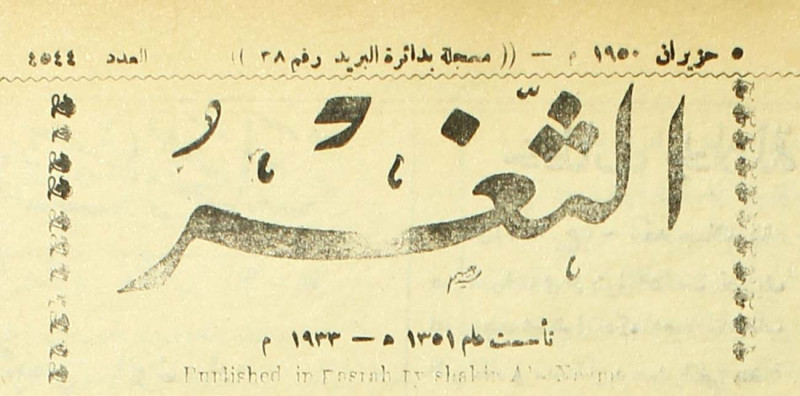 ٥ حزيران ١٩٥٠ م — (( مسجلة بدائرة البريد رقم ٣٨ )) العدد ٤٥٤٤
الثغر
تأسست عام ١٣٥١ ه — ١٩٣٣ م
Published in Basrah by shakir